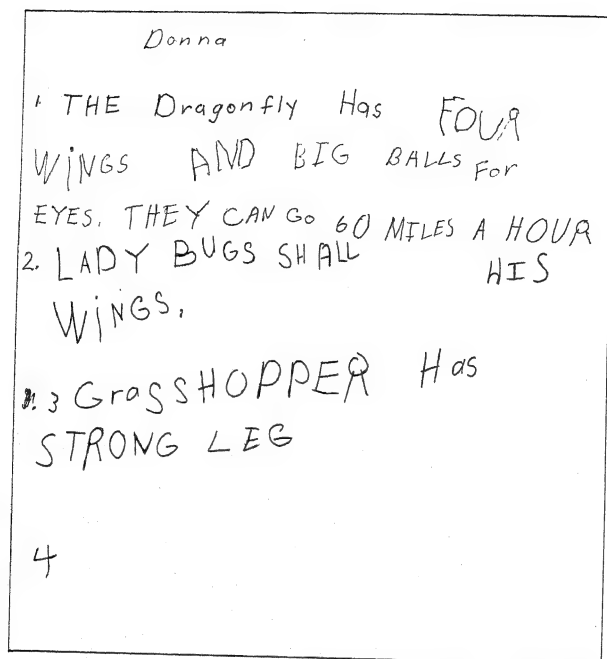 Donna
1. THE Dragonfly Has FOUR
WiNGS AND BIG BALLS For
EYES. THEY CAN Go 60 MILES A HOUR
2. LADY BUGS SHALL HIS
WiNGS.
3 GrasSHOPPER Has
STRONG LEG
4